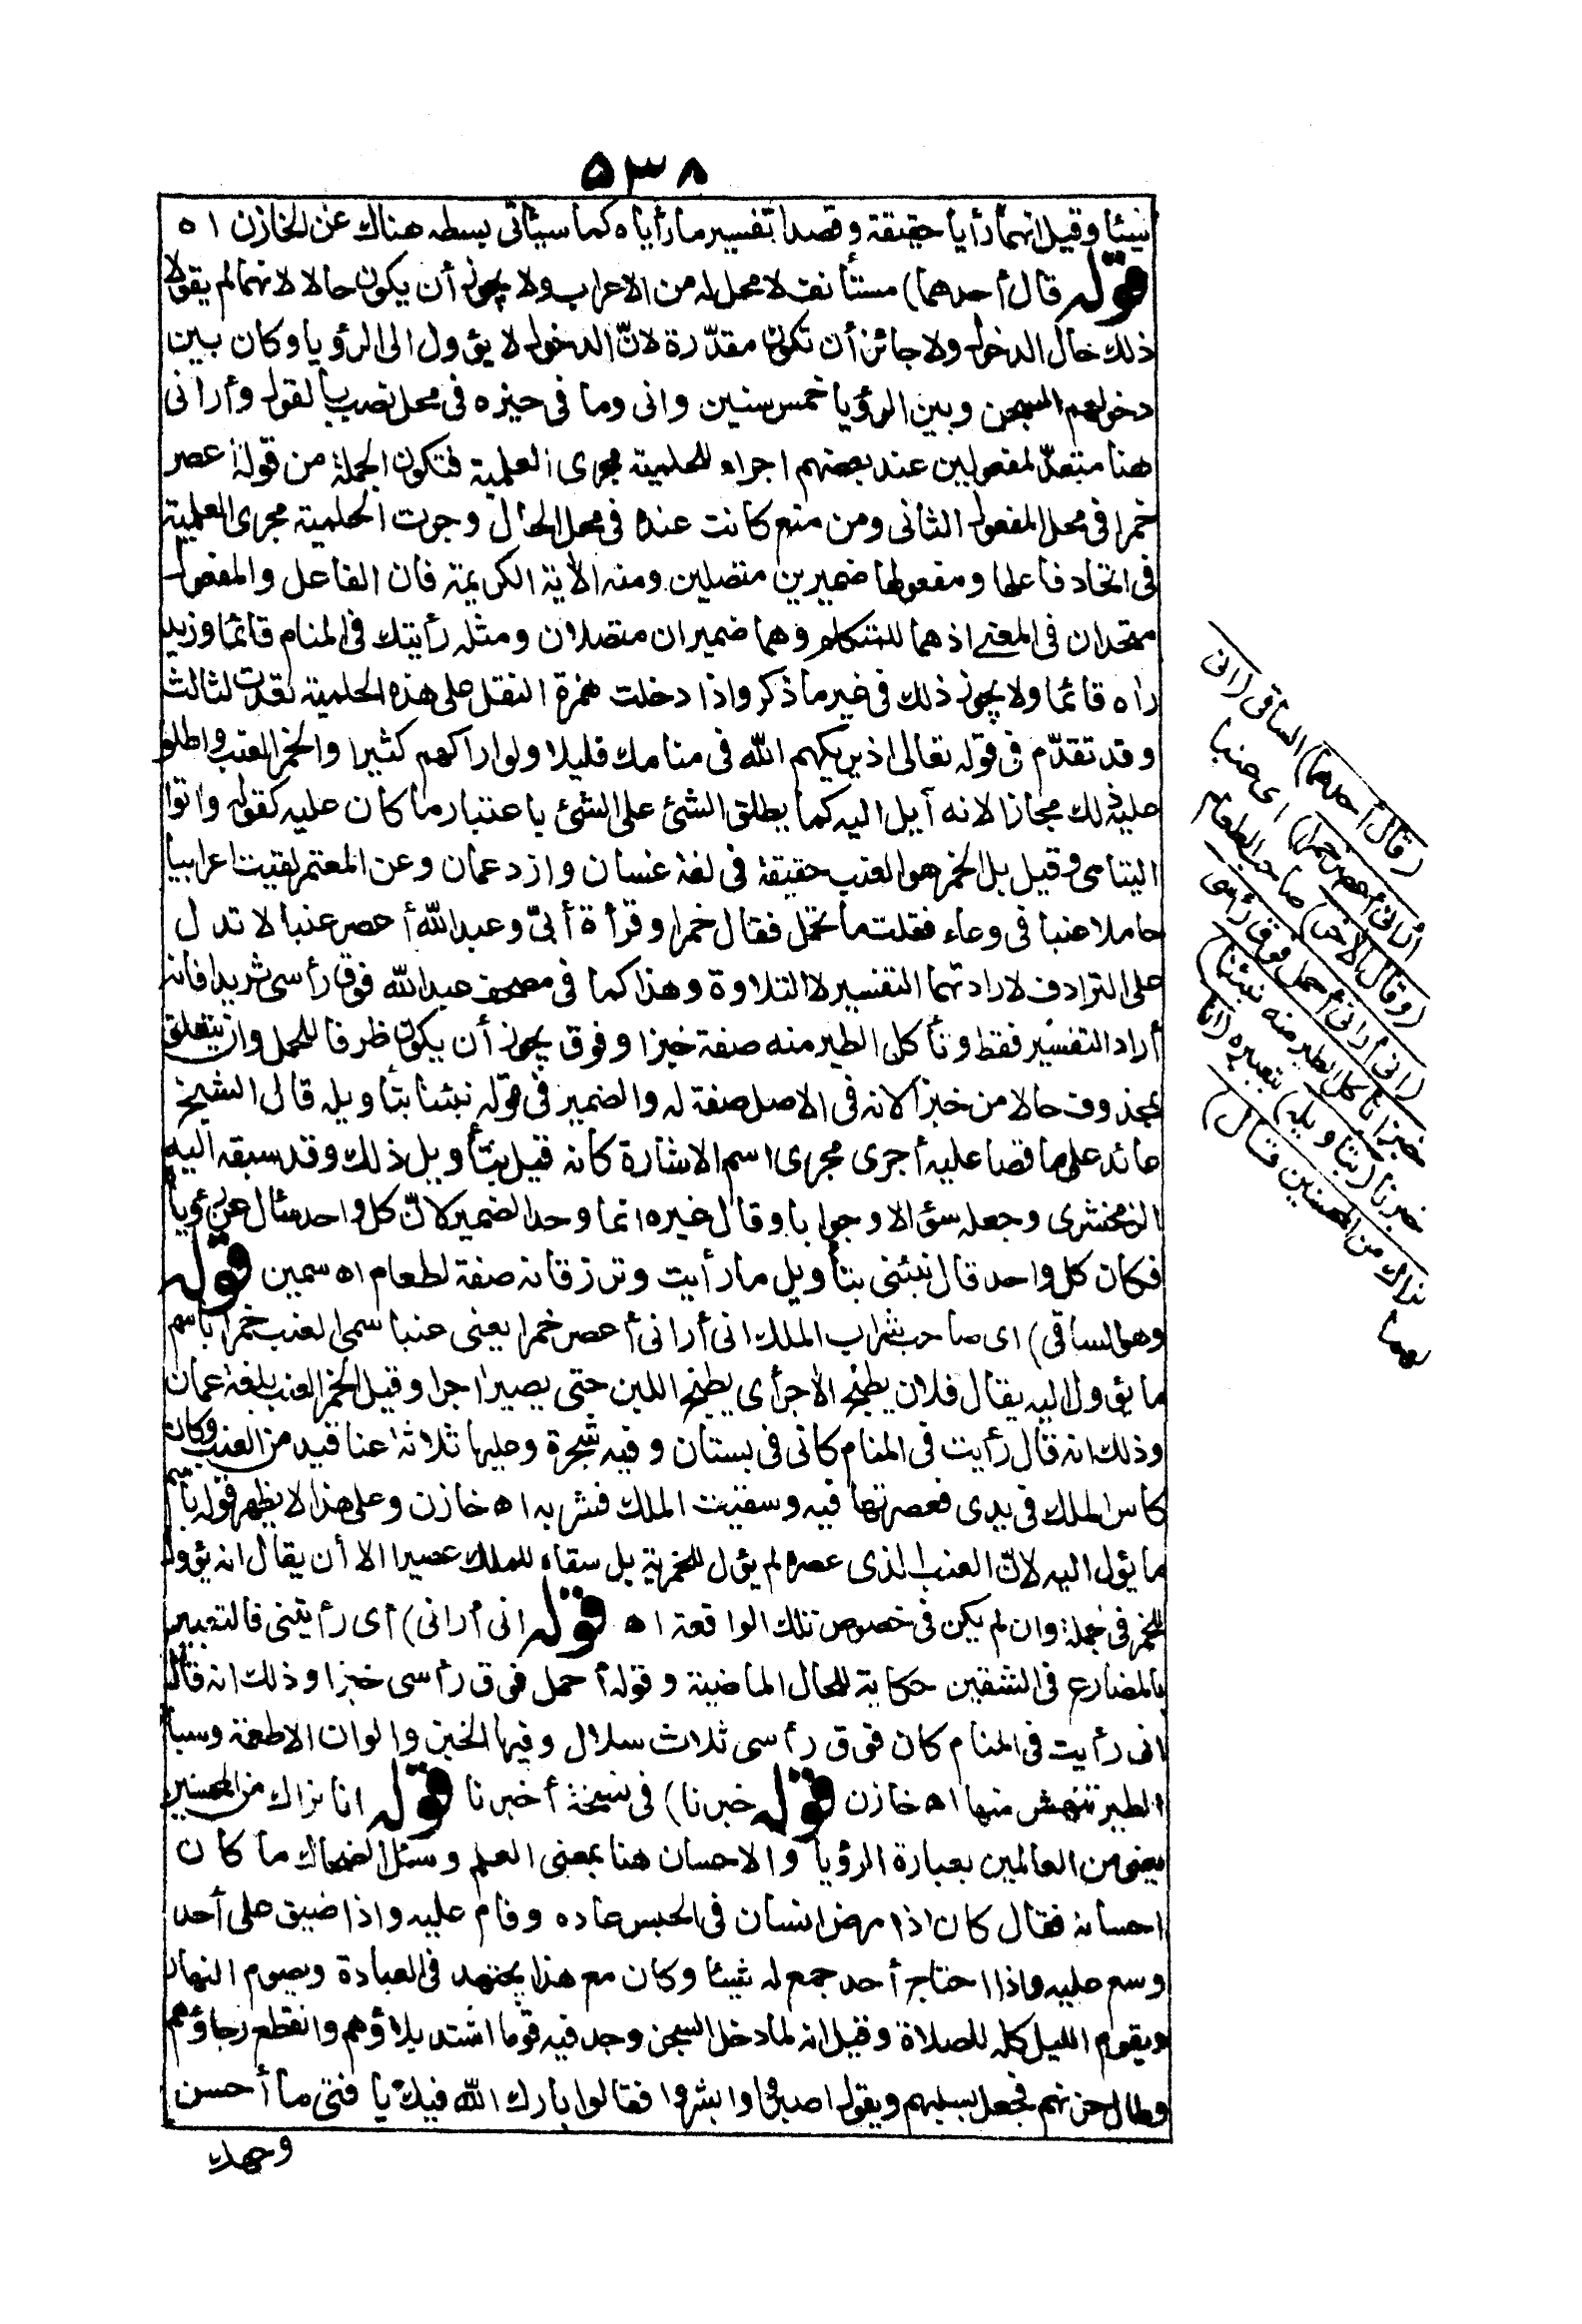 ٥٣٨
شيئا وقيل انهما رأيا حقيقة وقصدا تفسير ما رأياه كما سيأتى بسطه هناك عن الخازن اه
قوله قال أحدهما) مستأنف لا محل له من الاعراب ولا يجوز أن يكون حالا لانهما لم يقولا
ذلك حال الدخول ولا جائز أن تكون مقدّرة لانّ الدخول لا يؤول الى الرؤيا وكان بين
دخولهم السجن وبين الرؤيا خمس سنين وانى وما فى حيزه فى محل نصب بالقول وأرانى
هنا متعدّ لمفعولين عند بعضهم اجراء للحلمية مجرى العلمية فتكون الجملة من قوله أعصر
خمرا فى محل المفعول الثانى ومن منع كانت عنده فى محل الحال وجرت الحلمية مجرى العلمية
فى اتحاد فاعلها ومفعولها ضميرين متصلين ومنه الآية الكريمة فان الفاعل والمفعول
متحدان فى المعنى اذ هما للمتكلم وهما ضميران متصلان ومثله رأيتك فى المنام قائما وزيد
رآه قائما ولا يجوز ذلك فى غير ما ذكر واذا دخلت همزة النقل على هذه الحلمية تعدت لثالث
وقد تقدّم فى قوله تعالى اذ يريكهم الله فى منامك قليلا ولو اراكهم كثيرا والخمر العنب واطلق
عليه ذلك مجازا لانه آيل اليه كما يطلق الشئ على الشئ باعتبار ما كان عليه كقوله واتوا
اليتامى وقيل بل الخمر هو العنب حقيقة فى لغة غسان وازد عمان وعن المعتمر لقيت اعرابيا
حاملا عنبا فى وعاء فقلت ما تحمل فقال خمرا وقرأة أبىّ وعبد الله أعصر عنبا لا تدل
على الترادف لارادتهما التفسير لا التلاوة وهذا كما فى مصحف عبد الله فوق رأسى ثريدا فانه
أراد التفسير فقط وتأكل الطير منه صفة خبزا وفوق يجوز أن يكون ظرفا للحمل وان يتعلق
بمحذوف حالا من خبزا لانه فى الاصل صفة له والضمير فى قوله نبئنا بتأويله قال الشيخ
عائد على ما قصا عليه أجرى مجرى اسم الاشارة كانه قيل بتأويل ذلك وقد سبقه اليه
الزمخشرى وجعله سؤالا وجوابا وقال غيره انما وحد الضمير لانّ كل واحد سأل عن رؤياه
فكان كل واحد قال نبئنى بتأويل ما رأيت وترزقانه صفة لطعام اه سمين قوله
وهو الساقى) اى صاحب شراب الملك انى أرانى أعصر خمرا يعنى عنبا سمى العنب خمرا باسم
ما يؤول اليه يقال فلان يطبخ الآجر أى يطبخ اللبن حتى يصير اجرا وقيل الخمر العنب بلغة عمان
وذلك انه قال رأيت فى المنام كانى فى بستان وفيه شجرة وعليها ثلاثة عناقيد من العنب وكان
كاس الملك فى يدى فعصرتها فيه وسقيت الملك فشربه اه خازن وعلى هذا لا يظهر قوله باسم
ما يؤل اليه لانّ العنب الذى عصره لم يؤل للخمرية بل سقاه للملك عصيرا الا أن يقال انه يؤول
للخمر فى جملة وان لم يكن فى خصوص تلك الواقعة اه قوله انى أرانى) أى رأيتنى فالتعبير
بالمضارع فى الشقين حكاية للحال الماضية وقوله أحمل فوق رأسى خبزا وذلك انه قال
انى رأيت فى المنام كان فوق رأسى ثلاث سلال وفيها الخبز والوان الاطعمة وسباع
الطير تنهش منها اه خازن قوله خبرنا) فى نسخة أخبرنا قوله انا نراك من المحسنين
يعنى من العالمين بعبارة الرؤيا والاحسان هنا بمعنى العلم وسئل الضحاك ما كان
احسانه فقال كان اذا مرض انسان فى الحبس عاده وقام عليه واذا ضيق على أحد
وسع عليه واذا احتاج أحد جمع له شيئا وكان مع هذا يجتهد فى العبادة ويصوم النهار
ويقوم الليل كله للصلاة وقيل انه لما دخل السجن وجد فيه قوما اشتد بلاؤهم وانقطع رجاؤهم
وطال حزنهم فجعل يسليهم ويقول اصبروا وابشروا فقالوا بارك الله فيك يا فتى ما أحسن
وجهك
(قال أحدهما) الساقى (انى
أرانى أعصر خمرا) اى عنبا
(وقال الآخر) صاحب الطعام
(انى أرانى أحمل فوق رأسى
خبزا تأكل الطير منه نبئنا)
خبرنا (بتأويله) بتعبيره (انا
نراك من المحسنين قال)
لهما